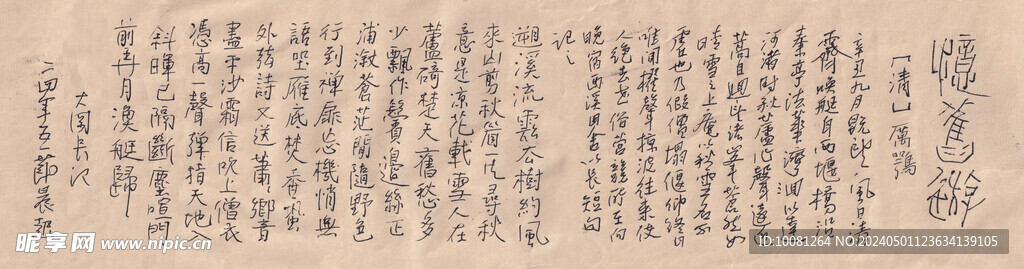 憶舊遊
「清」厲鶚
辛丑九月既望風日清
霽喚艇自西堰橋沿
秦亭法華灣洄以達
河渚時秋蘆作聲遠近
蒿目迴諸峯蒼然如
晴雪之上庵以秋雪名不
虛也乃假僧塌偃仰終日
唯聞櫂聲掠波往來使
人絕去世俗營競所在向
晚宿西溪田舍以長短句
記之
遡溪流雲去樹約風
來山剪秋眉一片尋秋
意是涼花載雪人在
蘆碕楚天舊愁多
少飄作鬢邊絲正
浦漵蒼茫閒隨野色
行到禪扉忘機悄無
語坐雁底焚香蛩
外弦詩又送蕭蕭響
盡平沙霜信吹上僧衣
憑高聲彈指天地
斜暉已隔斷塵喧門
前弄月漁艇歸
二四年五一節晨
昵享网 www.nipic.cn
ID:10081264 NO:20240501123634139105